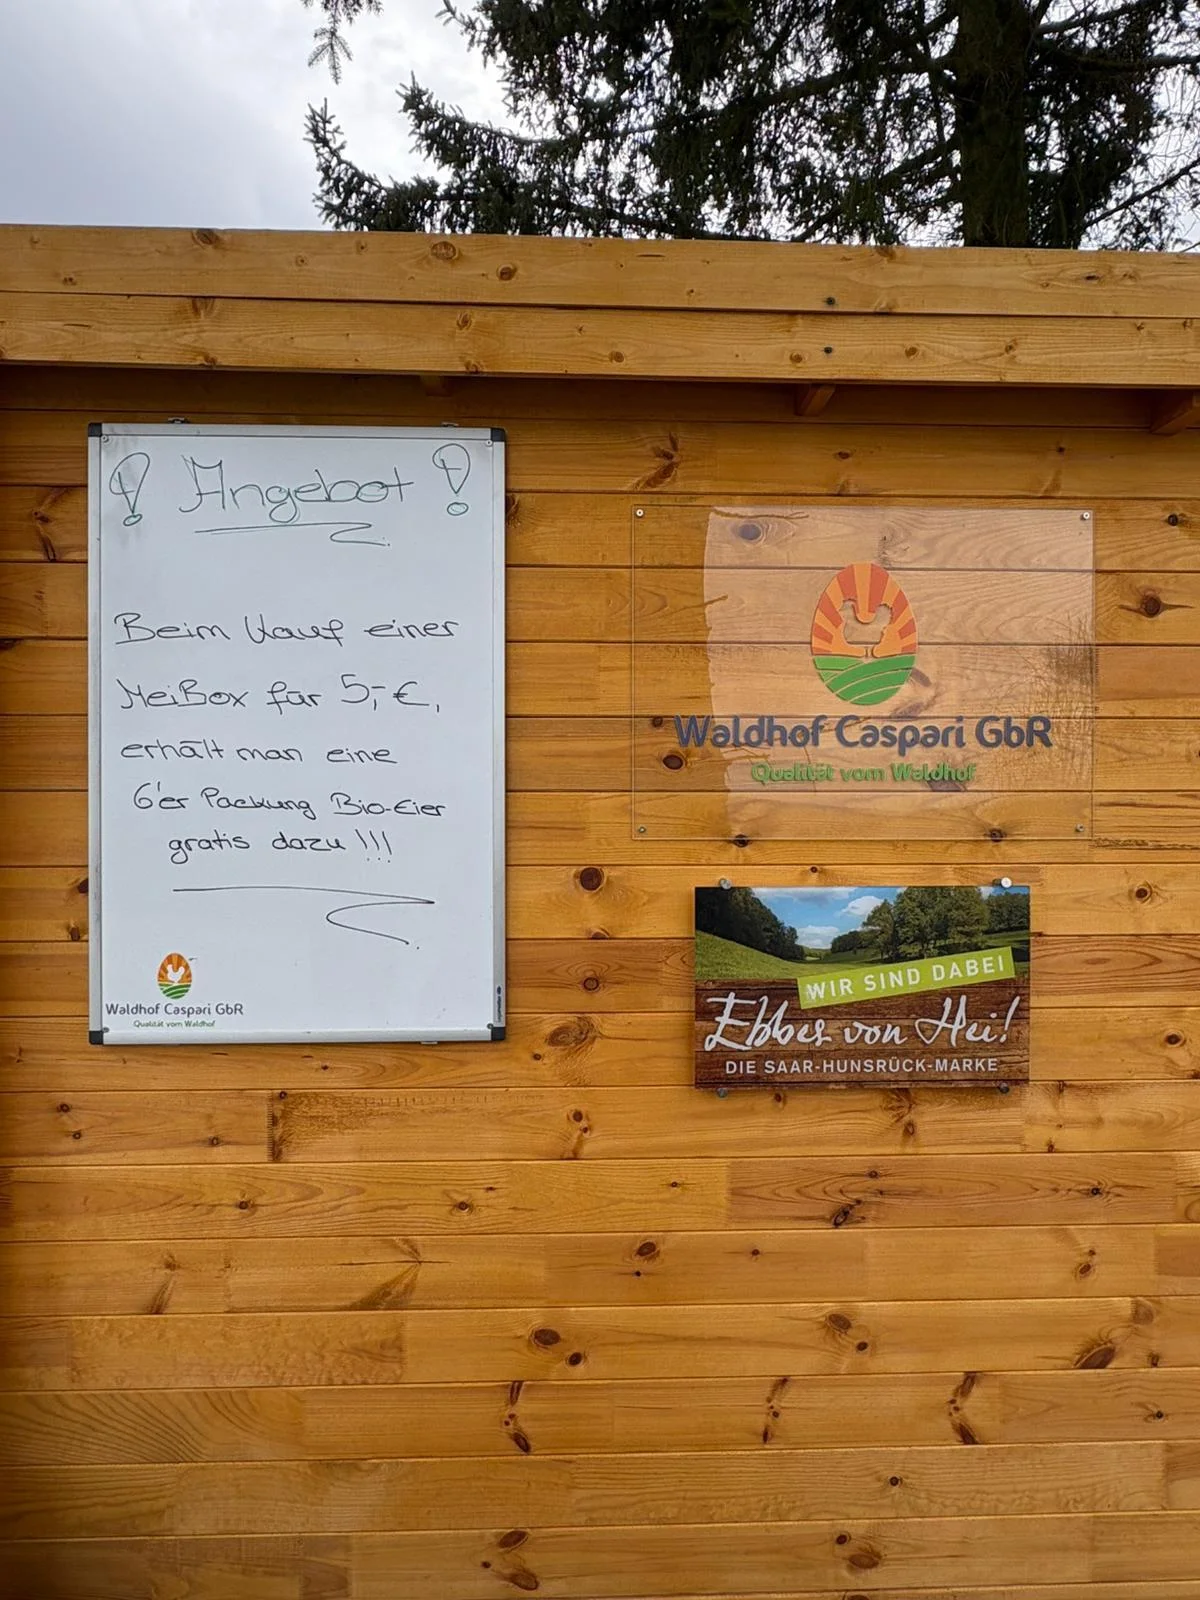 ! Angebot !
Beim Kauf einer
MeiBox für 5,-€,
erhält man eine
6'er Packung Bio-Eier
gratis dazu !!!
Waldhof Caspari GbR
Qualität vom Waldhof
Waldhof Caspari GbR
Qualität vom Waldhof
WIR SIND DABEI
Ebbes von Hei!
DIE SAAR-HUNSRÜCK-MARKE